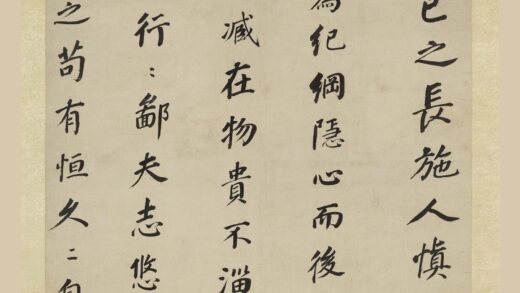 已之長施人慎
為紀綱隱心而後
臧在物貴不淄
行〻鄙夫志悠
之苟有恒久〻自